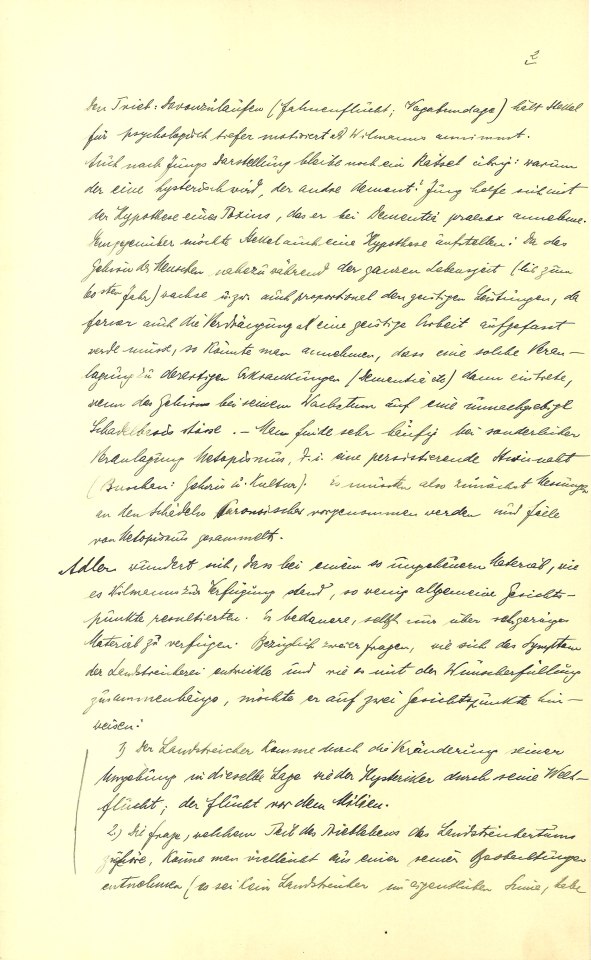 2
den Trieb: Davonzulaufen (Fahnenflucht, Vagabundage) hält Stekel
für psychologisch tiefer motiviert als Wilmanns annimmt.
Auch nach Jungs Darstellung bleibe noch ein Rätsel übrig: warum
der eine hysterisch wird, der andre dement! Jung helfe sich mit
der Hypothese eines Toxins, das er bei Dementia praecox annehme.
Demgegenüber möchte Stekel auch eine Hypothese aufstellen: Da das
Gehirn des Menschen nahezu während der ganzen Lebenszeit (bis zum
60sten Jahr) wachse u.zw. auch proportional den geistigen Leistungen, da
ferner auch die Verdrängung als eine geistige Arbeit aufgefasst
werde müsse, so könnte man annehmen, dass eine solche Veran-
lagung zu derartigen Erkrankungen (Dementia etc) dann eintrete,
wenn das Gehirn bei seinem Wachstum auf eine unnachgiebige
Schädelbasis stosse. – Man finde sehr häufig bei sonderlicher
Veranlagung Metopismus, d.i. eine persistierende Stirnnaht
(Buschan: Gehirn u. Kultur). Es müssten also zunächst Messungen
an den Schädeln Paranoischer vorgenommen werden und Fälle
von Metopismus gesammelt.
Adler wundert sich, dass bei einem so ungeheuern Material, wie
es Wilmanns zur Verfügung stand, so wenig allgemeine Gesichts-
punkte resultierten. Er bedauere, selbst nur über sehr geringes
Material zu verfügen. Bezüglich zweier Fragen, wie sich das Symptom
der Landstreicherei entwickle und wie es mit der Wunscherfüllung
zusammenhänge, möchte er auf zwei Gesichtspunkte hin-
weisen:
1) Der Landstreicher komme durch die Veränderung seiner
Umgebung in dieselbe Lage wie der Hysteriker durch seine Welt-
flucht; der Flucht vor dem Milieu.
2.) Die Frage, welchem Teil des Trieblebens das Landstreichertum
gehöre, könne man vielleicht aus einer seiner Beobachtungen
entnehmen (es sei kein Landstreicher im eigentlichen Sinne, habe